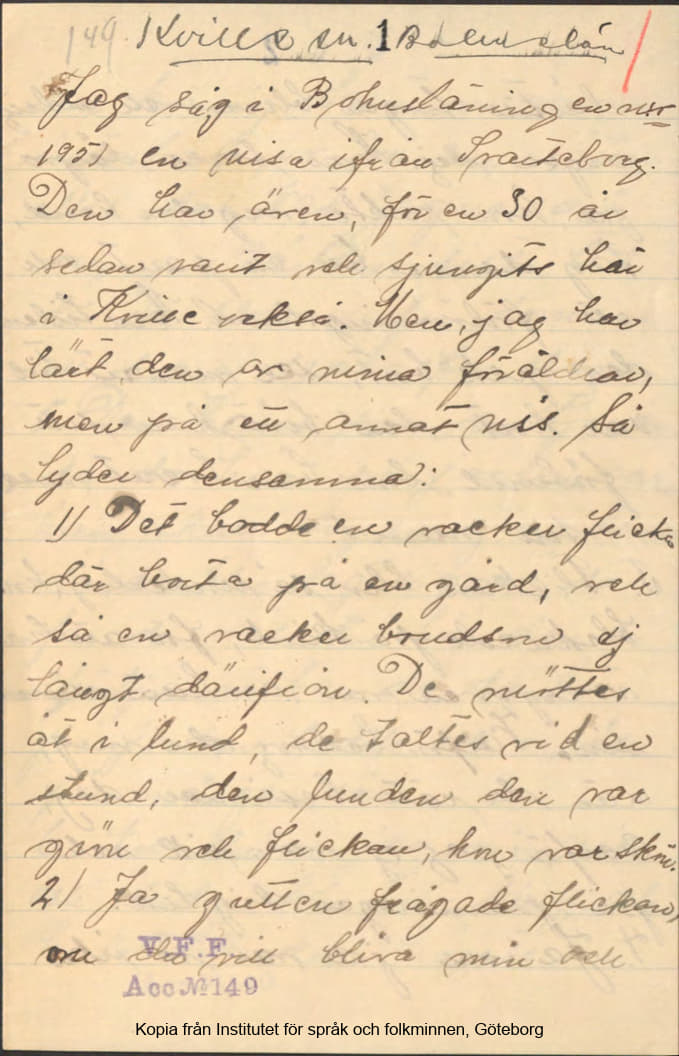 149. Kville sn. 1 Bohuslän
Jag såg i Bohusläningen nr
195) en visa ifrån Svarteborg.
Den har även, för en 30 år
sedan varit och sjungits här
i Kville också. Men, jag har
lärt den av mina föräldrar,
men på ett annat vis. Så
lyder densamma:
1) Det bodde en vacker flicka
där borta på en gård, och
så en vacker bondson ej
långt därifrån. De möttes
åt i lund, de taltes vid en
stund, den lunden den var
grön och flickan, hon var skön.
2) Ja gutten frågade flickan,
om du vill bliva min och
V.F.F.
Acc № 149
Kopia från Institutet för språk och folkminnen, Göteborg